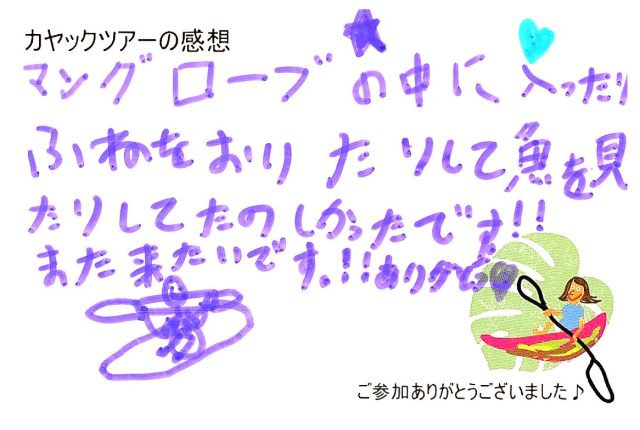 カヤックツアーの感想
マングローブの中に入ったり
ふねをおりたりして魚を見
たりしてたのしかったです!!
また来たいです。!!ありがとう
ご参加ありがとうございました♪